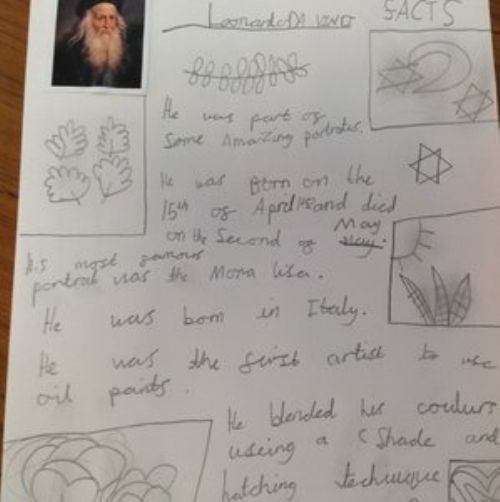 Leonardo DA VINCI
FACTS
He was part of
Some Amazing portrates.
He was Born on the
15th of April and died
on the Second of May
his most famous
portrait was the Mona Lisa.
He was born in Italy.
He was the first artist to use
oil paints.
He blended his coulurs
useing a Shade and
hatching techiuque